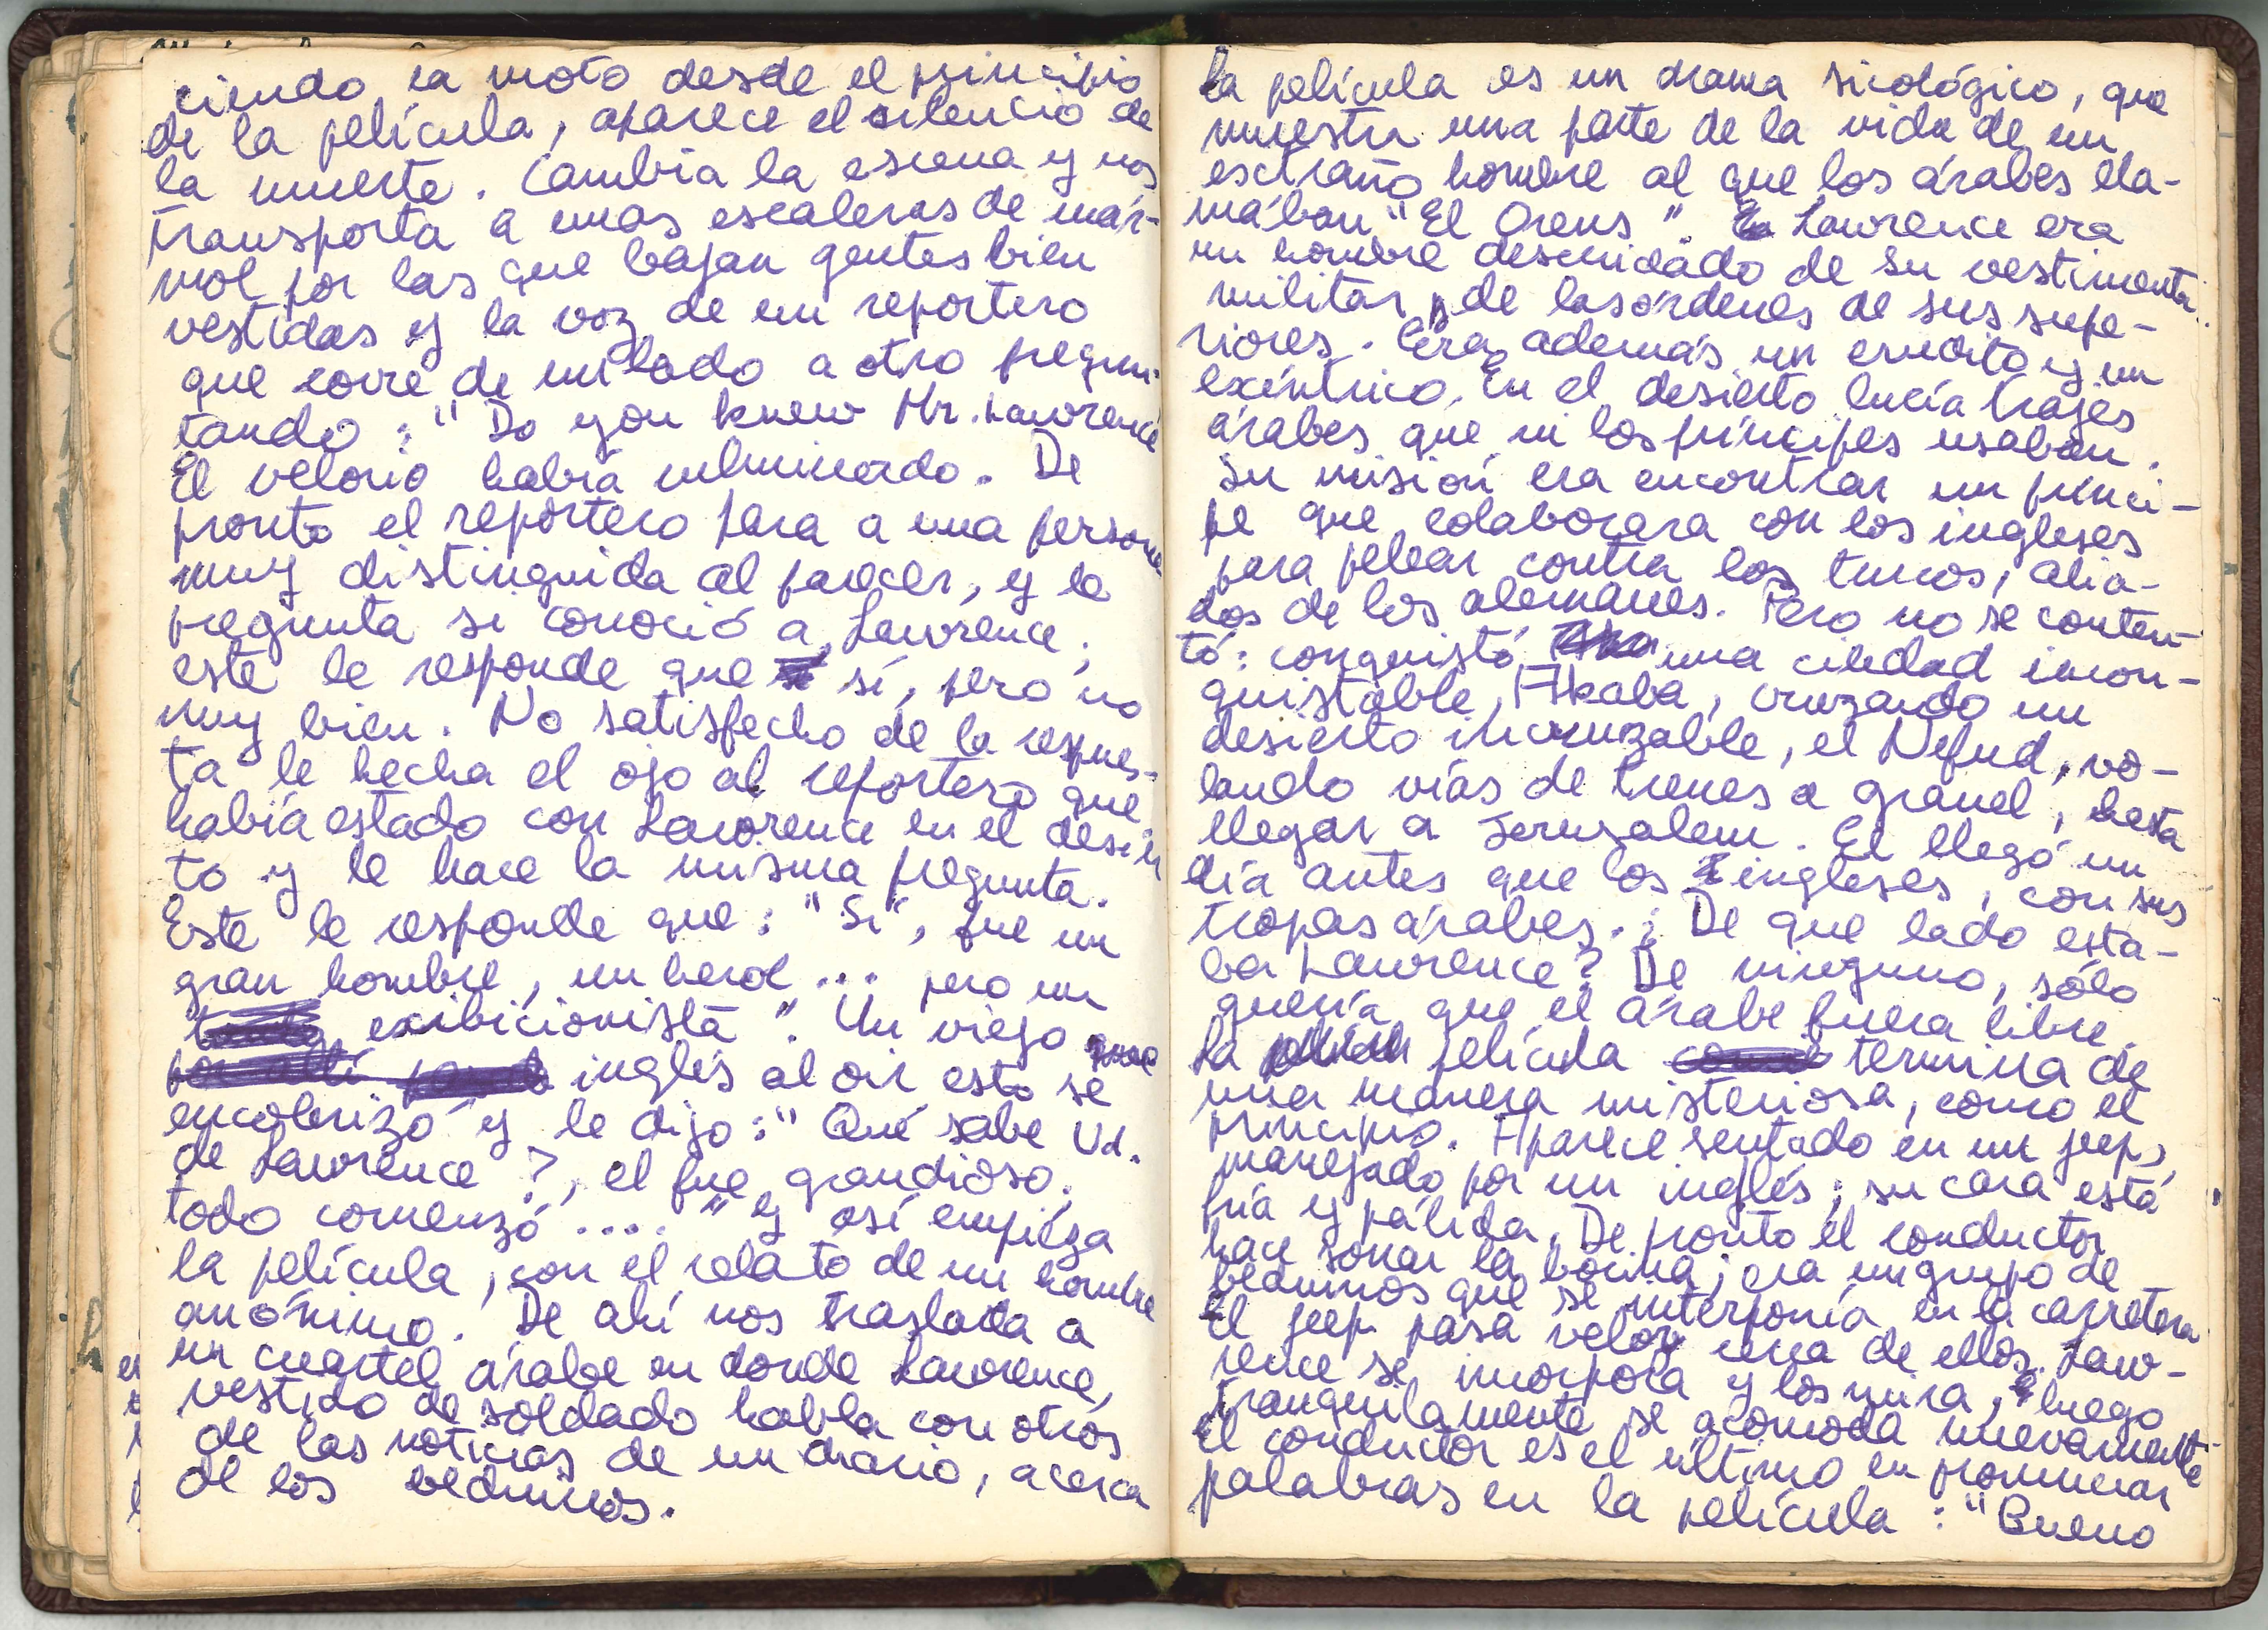 ciendo la moto desde el principio
de la película, aparece el silencio de
la muerte. Cambia la escena y nos
transporta a unas escaleras de már-
mol por las que bajan gentes bien
vestidas y la voz de un reportero
que corre de un lado a otro pregun-
tando: "Do you knew Mr. Lawrence
El velorio había culminado. De
pronto el reportero para a una persona
muy distinguida al parecer, y le
pregunta si conoció a Lawrence;
este le responde que sí, pero no
muy bien. No satisfecho de la respues-
ta le hecha el ojo al reportero que
había estado con Lawrence en el desier
to y le hace la misma pregunta.
Este le responde que: "Si", fue un
gran hombre, un heroe... pero un
exibicionista". Un viejo
inglés al oir esto se
encolerizó y le dijo: "Qué sabe Ud.
de Lawrence?, el fue grandioso,
todo comenzó...." y así empieza
la película, con el relato de un hombre
anónimo. De ahí nos traslada a
un cuartel árabe en donde Lawrence,
vestido de soldado habla con otros
de las noticias de un diario, acerca
de los beduinos.
La película es un drama sicológico, que
muestra una parte de la vida de un
esctraño hombre al que los árabes lla-
mában "El Orens". Lawrence era
un hombre descuidado de su vestimenta
militar y de las órdenes de sus supe-
riores. Era además un erudito y un
excéntrico. En el desierto lucía trajes
árabes que ni los príncipes usaban.
Su misión era encontrar un princi-
pe que colaborara con los ingleses
para pelear contra los turcos, alia-
dos de los alemanes. Pero no se conten-
tó: conquistó una ciudad incon-
quistable, Akaba, cruzando un
desierto incruzable, el Nefud, vo-
lando vías de trenes a granel, hasta
llegar a Jerusalem. El llegó un
día antes que los ingleses, con sus
tropas árabes. ¿De que lado esta-
ba Lawrence? De ninguno, sólo
quería que el árabe fuera libre.
La película termina de
una manera misteriosa, como el
principio. Aparece sentado en un jeep,
manejado por un inglés; su cara está
fría y pálida. De pronto el conductor
hace sonar la bocina; era un grupo de
beduinos que se interponía en la carretera
El jeep pasa veloz cerca de ellos. Law-
rence se incorpora y los mira, luego
tranquilamente se acomoda nuevamente.
El conductor es el último en pronunciar
palabras en la película: "Bueno